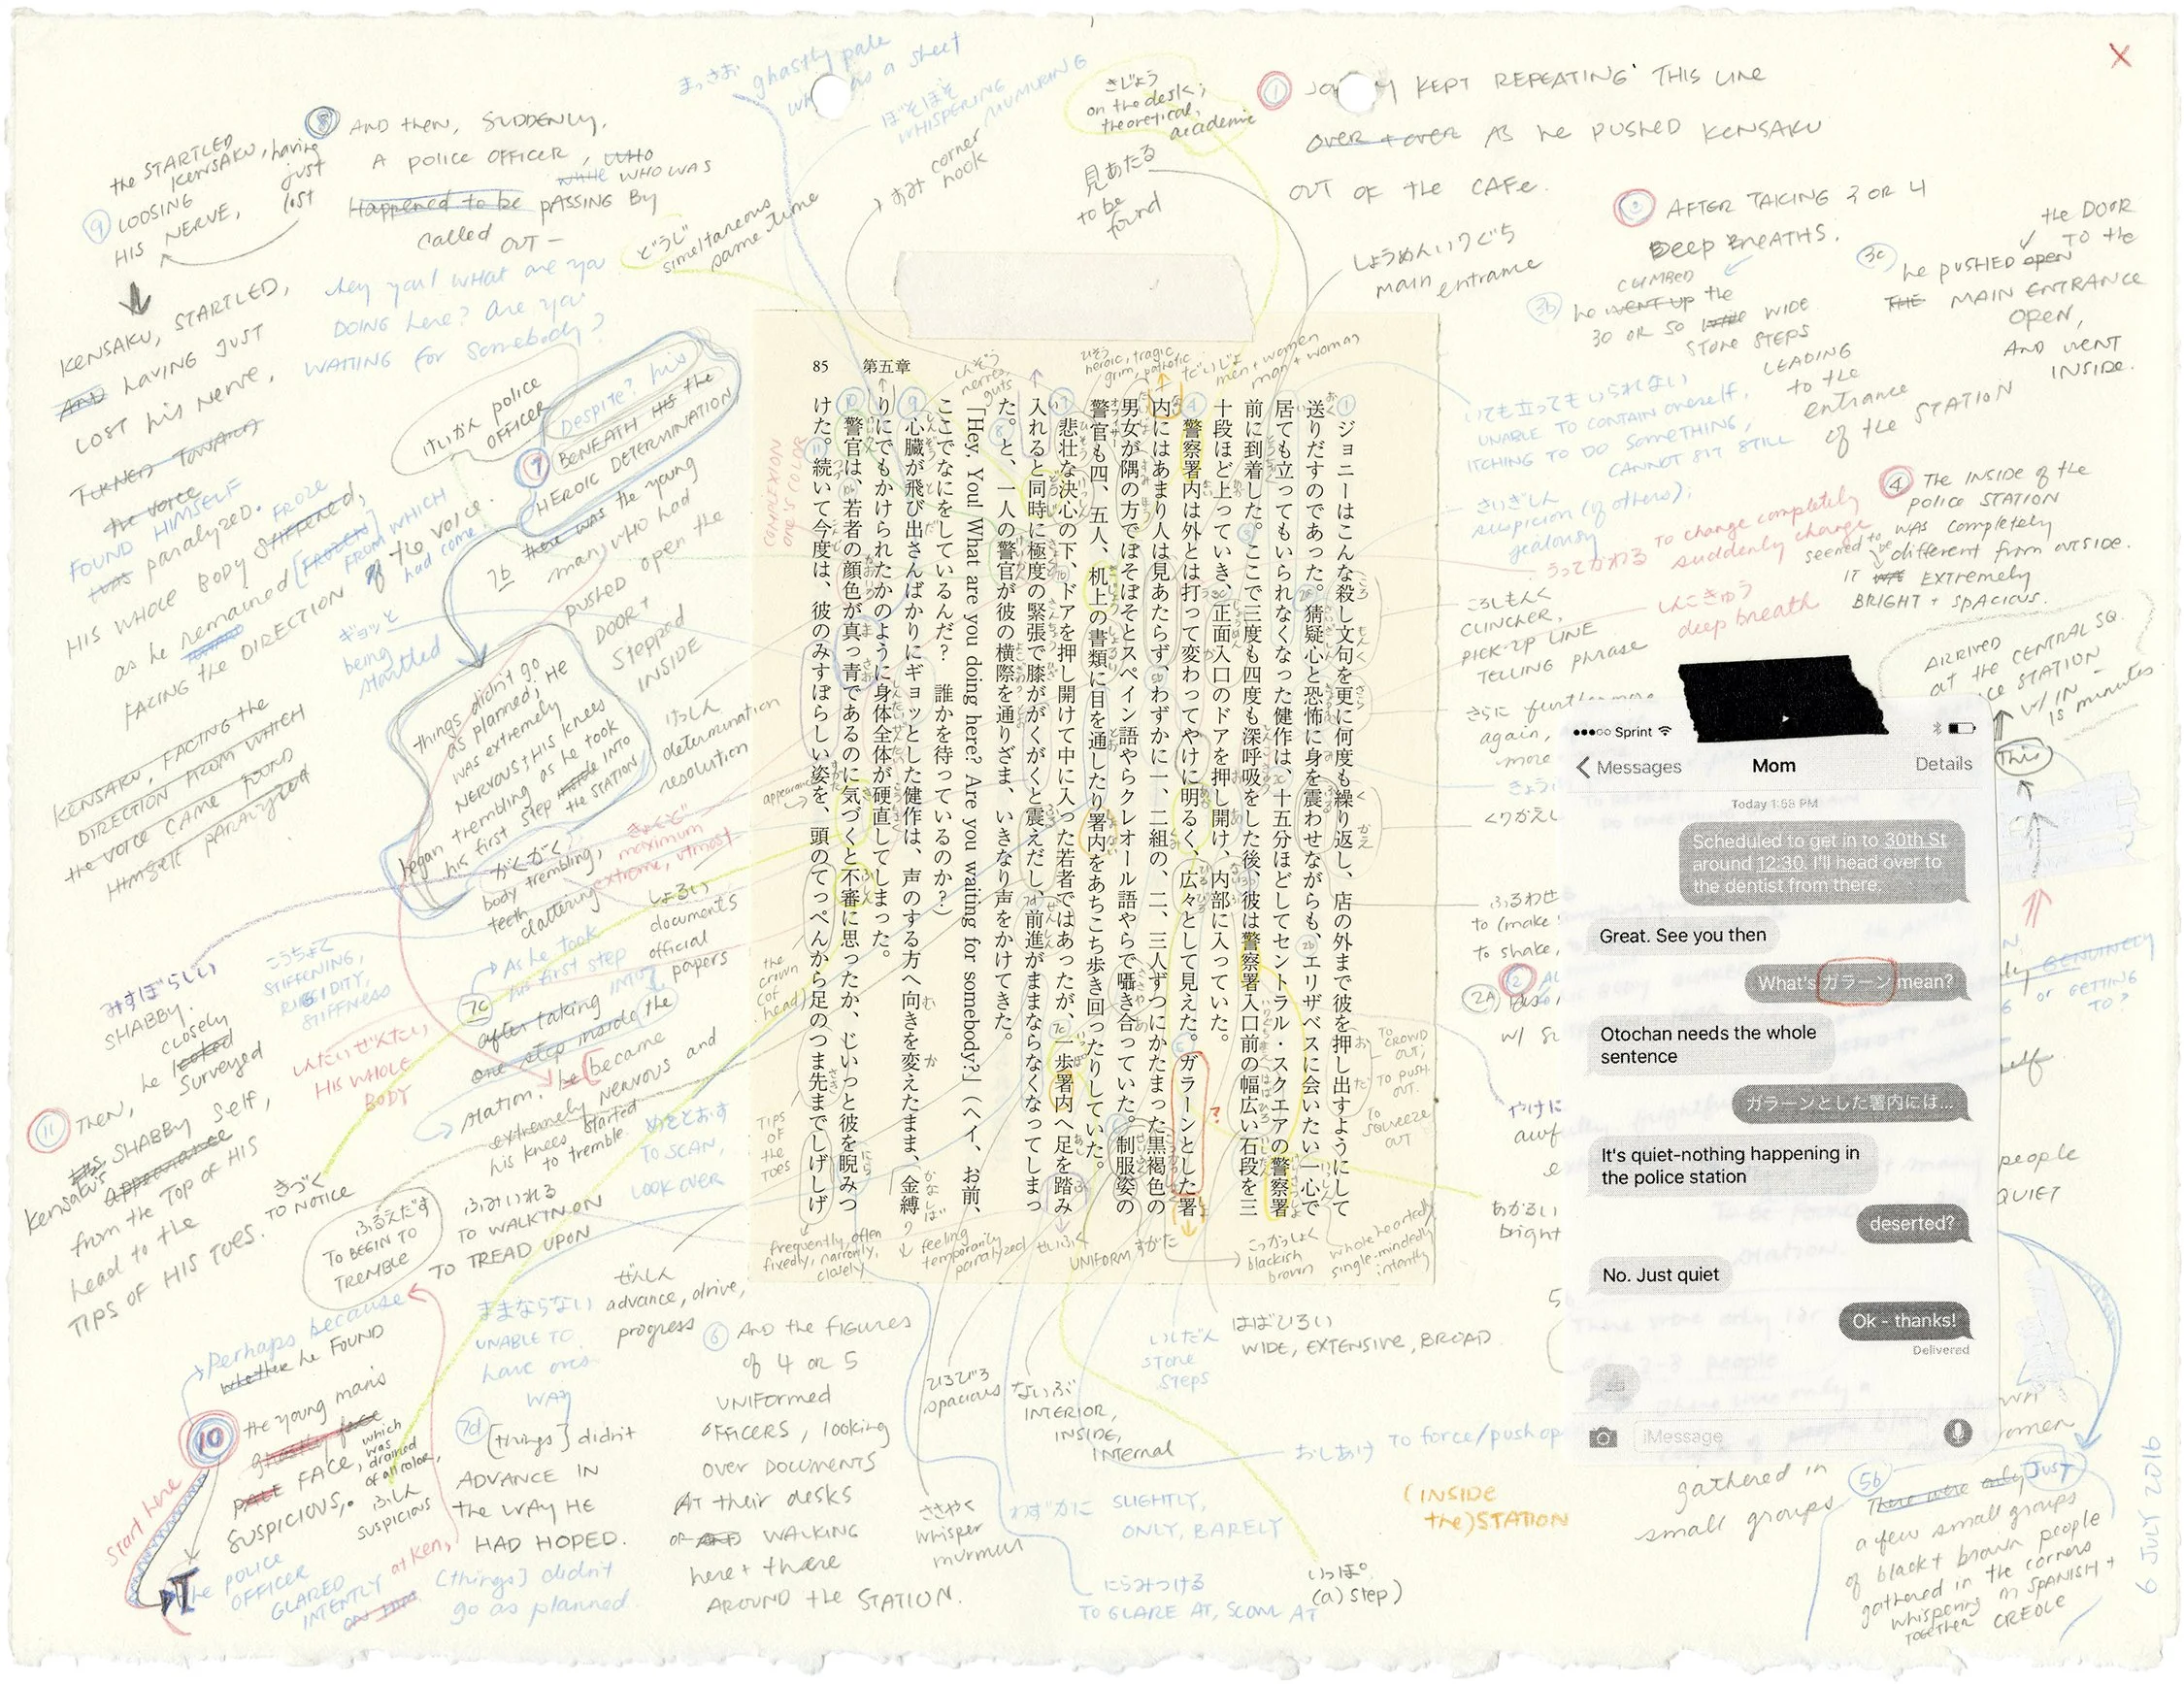 まっさお ghastly pale
as a sheet
ぼそぼそ
WHISPERING
MUMURING
すみ corner
nook
きじょう
on the desk;
theoretical,
academic
見あたる
to be
found
どうじ
simeltaneous
same time
① KEPT REPEATING THIS LINE
over + over AS he PUSHED KENSAKU
OUT OF the CAFe.
しょうめんいりぐち
main entrance
AFTER TAKING 3 OR 4
DEEP BREATHS.
3b he WENT UP the
CLIMBED
30 OR SO WIDE
STONE STEPS
LEADING
to the
entrance
of the STATION
3c he PUSHED open
the DOOR
TO the
THE MAIN ENTRANCE
OPEN,
AND WENT
INSIDE.
④ The INSIDE of the
police STATION
WAS completely
seemed to be
different from outside.
IT was EXTREMELY
BRIGHT + SPACIOUS.
いても立ってもいられない
UNABLE TO CONTAIN oneself,
ITCHING TO DO SOMETHING,
CANNOT SIT STILL
さいぎしん
suspicion (of others);
jealousy
うってかわる To change completely
suddenly change
ころしもんく
CLINCHER,
PICK-UP LINE
TELLING phrase
しんこきゅう
deep breath
さらに furthermore
again,
more
くりかえし
ARRIVED
at the CENTRAL SQ.
STATION
W/IN
15 minutes
This
⑧ AND then, SUDDENLY,
A police OFFICER, WHO
while WHO WAS
Happened to be PASSING BY
called OUT –
hey you! What are you
DOING here? Are you
WAITING for somebody?
the STARTLED
KENSAKU, having
just
lost
⑨ LOOSING
HIS NERVE,
KENSAKU, STARTLED,
AND having JUST
LOST his Nerve,
TURNED TOWARD
the voice
FOUND HIMSELF
was paralyzed. FROZE
HIS WHOLE BODY stiffened,
as he remained [frozen]
FACING the DIRECTION
FROM WHICH
of the voice.
had come
KENSAKU, FACING the
DIRECTION FROM WHICH
the VOICE CAME FOUND
HIMSELF PARALYZED
けいかん police
OFFICER
⑦ Despite? his
BENEATH HIS the
HEROIC DETERMINATION
7b there was the young
man who had
pushed open the
DOOR +
stepped
INSIDE
ギョッと
being
startled
things didn't go
as planned; He
was extremely
NERVOUS + HIS knees
began trembling as he took
his first step INTO
the STATION
けっしん
determination
resolution
がくがく
body trembling,
teeth
clattering
きょくど
maximum
extreme, utmost
しょるい
documents
official
papers
みすぼらしい
SHABBY.
こうちょく
STIFFENING,
RIGIDITY,
STIFFNESS
しんたいぜんたい
HIS WHOLE
BODY
7c As he took
his first step
after taking INTO
one step inside the
station, he became
extremely nervous and
his knees started
to tremble.
めをとおす
TO SCAN,
LOOK OVER
⑪ THEN, he looked
closely
surveyed
his SHABBY self,
Kensaku's appearance
from the TOP of HIS
head to the
TIPS OF HIS TOES.
きづく
TO NOTICE
ふるえだす
TO BEGIN TO
TREMBLE
ふみいれる
TO WALK IN ON
TO TREAD UPON
85 第五章
ひそう
heroic, tragic
grim, pathetic
しんぞう
nerves,
guts
だんじょ
men + women
man + woman
ジョニーはこんな殺し文句を更に何度も繰り返し、店の外まで彼を押し出すようにして
送りだすのであった。猜疑心と恐怖に身を震わせながらも、エリザベスに会いたい一心で
居ても立ってもいられなくなった健作は、十五分ほどしてセントラル・スクエアの警察署
前に到着した。ここで三度も四度も深呼吸をした後、彼は警察署入口前の幅広い石段を三
十段ほど上っていき、正面入口のドアを押し開け、内部に入っていた。
警察署内は外とは打って変わってやけに明るく、広々として見えた。ガラーンとした署
内にはあまり人は見あたらず、わずかに一、二組の、二、三人ずつにかたまった黒褐色の
男女が隅の方でぼそぼそとスペイン語やらクレオール語やらで囁き合っていた。制服姿の
警官も四、五人、机上の書類に目を通したり署内をあちこち歩き回ったりしていた。
悲壮な決心の下、ドアを押し開けて中に入った若者ではあったが、一歩署内へ足を踏み
入れると同時に極度の緊張で膝ががくがくと震えだし、前進がままならなくなってしまっ
た。と、一人の警官が彼の横際を通りざま、いきなり声をかけてきた。
「Hey, You! What are you doing here? Are you waiting for somebody?」(ヘイ、お前、
ここでなにをしているんだ? 誰かを待っているのか?)
心臓が飛び出さんばかりにギョッとした健作は、声のする方へ向きを変えたまま、金縛
りにでもかけられたかのように身体全体が硬直してしまった。
警官は、若者の顔色が真っ青であるのに気づくと不審に思ったか、じいっと彼を睨みつ
けた。続いて今度は、彼のみすぼらしい姿を、頭のてっぺんから足のつま先までしげしげ
COMPLEXION
ONE'S COLOR
appearance
the
crown
(of
head)
TIPS
OF
the
TOES
TO
CROWD
OUT;
TO PUSH
OUT.
TO
SQUEEZE
OUT
?
frequently, often
fixedly, narrowly,
closely
feeling
temporarily
paralyzed
せいふく
UNIFORM
すがた
こっかっしょく
blackish
brown
whole heartedly
single-mindedly
intently
Sprint
Messages
Mom
Details
Today 1:58 PM
Scheduled to get in to 30th St
around 12:30. I'll head over to
the dentist from there.
Great. See you then
What's ガラーン mean?
Otochan needs the whole
sentence
ガラーンとした署内には...
It's quiet-nothing happening in
the police station
deserted?
No. Just quiet
Ok - thanks!
Delivered
iMessage
ふるわせ
to (make
to shake,
2A
やけに
あかるい
bright
GENUINELY
or GETTING
TO?
people
QUIET
Perhaps because
whether he FOUND
⑩ the young man's
ghastly face
PALE FACE,
which
was
drained
of all color,
SUSPICIOUS,
ふしん
suspicious
Start here
The POLICE
OFFICER
GLARED
INTENTLY
at Ken,
ままならない
UNABLE TO
have one's
way
7d [things] didn't
ADVANCE IN
the WAY HE
HAD HOPED.
[things] didn't
go as planned.
ぜんしん
advance, drive,
progress
⑥ AND the FIGURES
of 4 OR 5
UNIFORMED
OFFICERS, looking
OVER DOCUMENTS
AT their desks
or AND WALKING
here + there
AROUND the STATION.
ひろびろ
spacious
ないぶ
INTERIOR,
INSIDE,
INTERNAL
いしだん
STONE
STEPS
はばひろい
WIDE, EXTENSIVE, BROAD
おしあけ TO force/push op
ささやく
whisper
murmur
わずかに SLIGHTLY,
ONLY, BARELY
(INSIDE
the) STATION
いっぽ
(a) step)
にらみつける
TO GLARE AT, SCOWL AT
gathered in
small groups
5b There were only JUST
a few small groups
of black + brown people
gathered in the corners
whispering in SPANISH +
TOGETHER CREOLE
6 JULY 2016